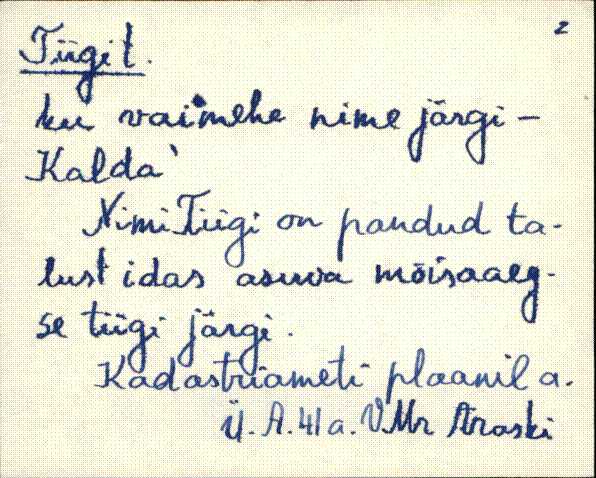 2
Tiigi t.
ku vaimehe nime järgi –
Kalda'
Nimi Tiigi on pandud ta-
lust idas asuva mõisaaeg-
se tiigi järgi.
Kadastriameti plaanil a.
Ü. A. 41 a. V Mr Araski